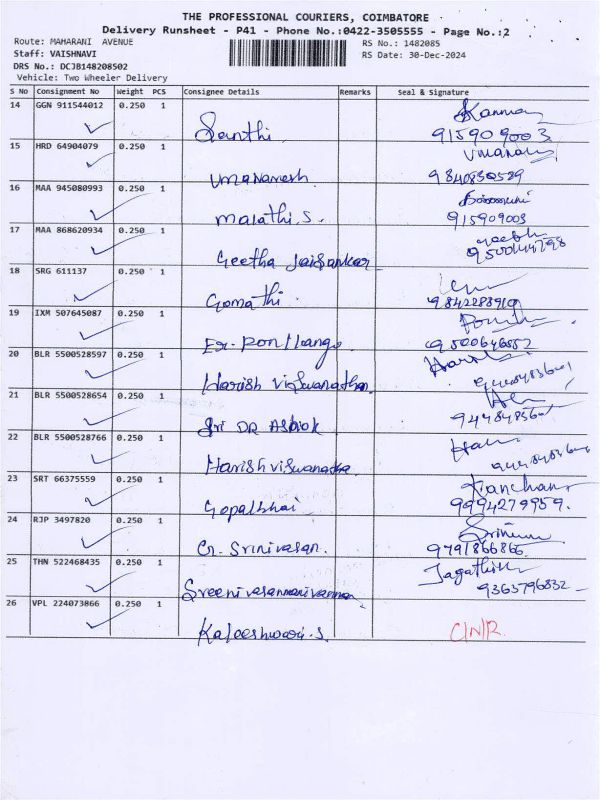 THE PROFESSIONAL COURIERS, COIMBATORE
Delivery Runsheet - P41 - Phone No.:0422-3505555 - Page No.:2
Route: MAHARANI AVENUE RS No.: 1482085
Staff: VAISHNAVI RS Date: 30-Dec-2024
DRS No.: DCJB148208502
Vehicle: Two Wheeler Delivery
S No Consignment No Weight PCS Consignee Details Remarks Seal & Signature
14 GGN 911544012 0.250 1
Santhi 915909003
15 HRD 64904079 0.250 1
umaramesh 9840830589
16 MAA 945080993 0.250 1
malathi. S. 915909003
17 MAA 868620934 0.250 1
Geetha Jaisankar
18 SRG 611137 0.250 1
Gomathi. 9842288919
19 IXM 507645087 0.250 1
Er. Ponilango 9500646852
20 BLR 5500528597 0.250 1
Harish viswanathan
21 BLR 5500528654 0.250 1
Sri DR Ashok
22 BLR 5500528766 0.250 1
Harish
23 SRT 66375559 0.250 1
Gopalbhai 9994279959.
24 RJP 3497820 0.250 1
Cr. Srinivasan. 9791866866
25 THN 522468435 0.250 1
9363796832
26 VPL 224073866 0.250 1
Kaleeshwari. S C/N/R.